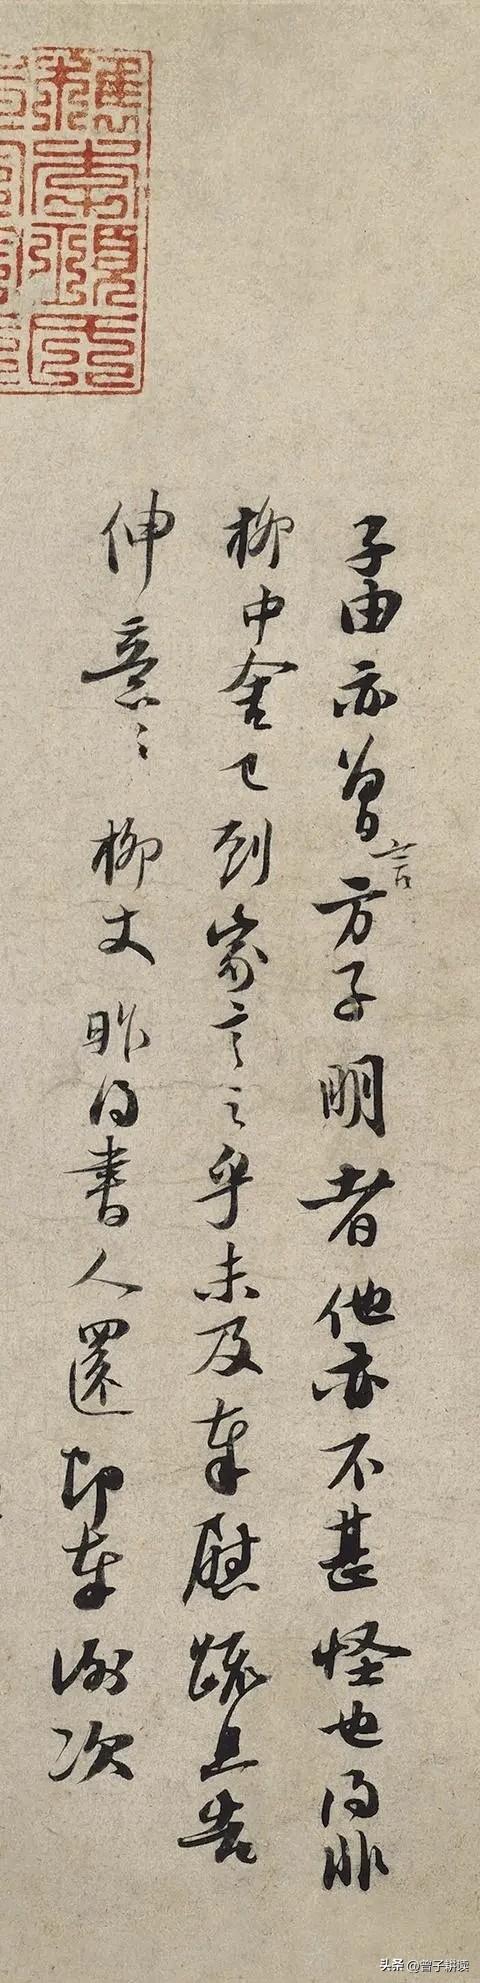 子由亦曾言方子明者他亦不甚怪也得非
柳中舍已到家言之乎未及奉慰疏且告
伸意〻柳丈昨得书人還即奉謝次
头条@曾子耕读